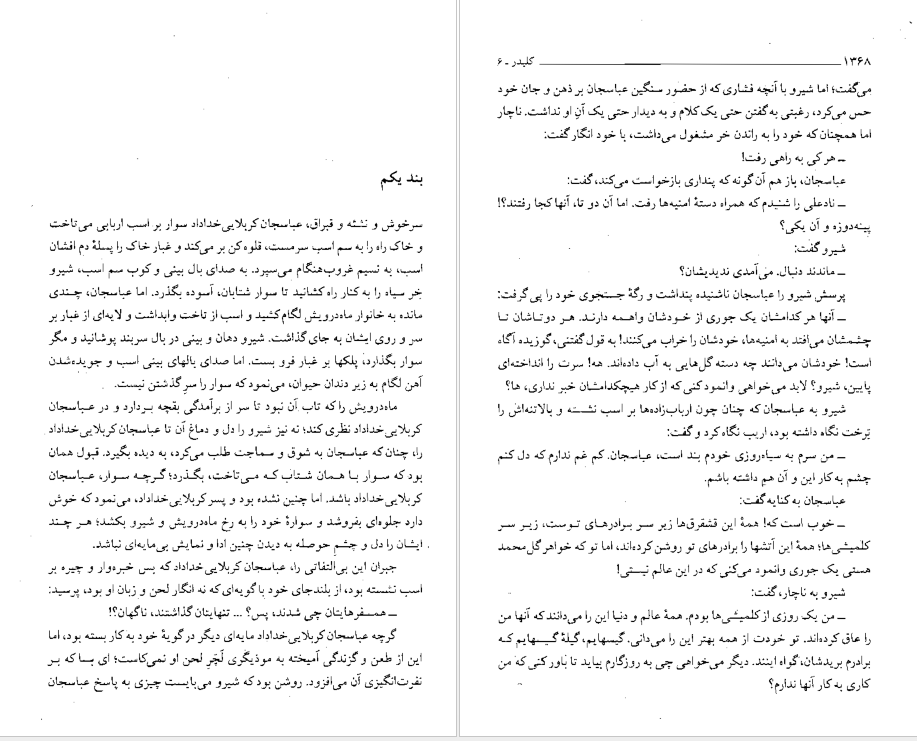 بند یکم
سرخوش و نشئه و قبراق، عباسجان کربلایی خداداد سوار بر اسب اربابی می‌تاخت
و خاک راه را به سم اسب سرمست، قلوه‌کن بر می‌کند و غبار خاک را پسلهٔ دم افشان
اسب، به نسیم غروب‌هنگام می‌سپرد. به صدای بال بینی و کوب سم اسب، شیرو
خر سیاه را به کنار راه کشانید تا سوار شتابان، آسوده بگذرد. اما عباسجان، چندی
مانده به خانوار ماه‌درویش لگام کشید و اسب از تاخت وابداشت و لایه‌ای از غبار بر
سر و روی ایشان به جای گذاشت. شیرو دهان و بینی در بال سربند پوشانید و مگر
سوار بگذارد، پلکها بر غبار فرو بست. اما صدای بالهای بینی اسب و جویده‌شدن
آهن لگام به زیر دندان حیوان، می‌نمود که سوار را سرِ گذشتن نیست.
ماه‌درویش را که تاب آن نبود تا سر از برآمدگی بقچه بردارد و در عباسجان
کربلایی خداداد نظری کند؛ نه نیز شیرو را دل و دماغ آن تا عباسجان کربلایی خداداد
را، چنان که عباسجان به شوق و سماجت طلب می‌کرد، به دیده بگیرد. قبول همان
بود که سوار با همان شتاب که می‌تاخت، بگذرد؛ گرچه سوار، عباسجان
کربلایی خداداد باشد. اما چنین نشده بود و پسر کربلایی خداداد، می‌نمود که خوش
دارد جلوه‌ای بفروشد و سوارهٔ خود را به رخ ماه‌درویش و شیرو بکشد؛ هر چند
ایشان را دل و چشم حوصله به دیدن چنین ادا و نمایش بی‌مایه‌ای نباشد.
جبران این بی‌التفاتی را، عباسجان کربلایی خداداد که پس خبره‌وار و چیره بر
اسب نشسته بود، از بلندجای خود با گویه‌ای که نه انگار لحن و زبان او بود، پرسید:
ــ همسفرهایتان چی شدند، پس؟ ... تنهایتان گذاشتند، ناگهان؟!
گرچه عباسجان کربلایی خداداد مایه‌ای دیگر در گویهٔ خود به کار بسته بود، اما
این از طعن و گزندگی آمیخته به موذیگری لَچَرِ لحن او نمی‌کاست؛ ای بسا که بر
نفرت‌انگیزی آن می‌افزود. روشن بود که شیرو می‌بایست چیزی به پاسخ عباسجان
۱۳۶۸ ــــ کلیدر ـ ۶
می‌گفت؛ اما شیرو با آنچه فشاری که از حضور سنگین عباسجان بر ذهن و جان خود
حس می‌کرد، رغبتی به گفتن حتی یک کلام و به دیدار حتی یک آنِ او نداشت. ناچار
اما همچنان که خود را به راندن خر مشغول می‌داشت، با خود انگار گفت:
ــ هر کی به راهی رفت!
عباسجان، باز هم آن گونه که پنداری بازخواست می‌کند، گفت:
ــ نادعلی را شنیدم که همراه دستهٔ امنیه‌ها رفت. اما آن دو تا، آنها کجا رفتند؟!
پینه‌دوزه و آن یکی؟
شیرو گفت:
ــ ماندند دنبال. می‌آمدی ندیدیشان؟
پرسش شیرو را عباسجان ناشنیده پنداشت و رگهٔ جستجوی خود را پی گرفت:
ــ آنها هر کدامشان یک جوری از خودشان واهمه دارند. هر دوتاشان تا
چشمشان می‌افتد به امنیه‌ها، خودشان را خراب می‌کنند! به قول گفتنی، گوزیده آگاه
است! خودشان می‌دانند چه دسته گل‌هایی به آب داده‌اند. هه! سرت را انداخته‌ای
پایین، شیرو؟ لابد می‌خواهی وانمود کنی که از کار هیچکدامشان خبر نداری، ها؟
شیرو به عباسجان که چنان چون ارباب‌زاده‌ها بر اسب نشسته و بالاتنه‌اش را
بَرخت نگاه داشته بود، اریب نگاه کرد و گفت:
ــ من سرم به سیاه‌روزی خودم بند است، عباسجان. کم غم ندارم که دل کنم
چشم به کار این و آن هم داشته باشم.
عباسجان به کنایه گفت:
ــ خوب است که! همهٔ این قشقرق‌ها زیر سر برادرهای توست، زیر سر
کلمیشی‌ها؛ همهٔ این آتشها را برادرهای تو روشن کرده‌اند، اما تو که خواهر گل‌محمد
هستی یک جوری وانمود می‌کنی که در این عالم نیستی!
شیرو به ناچار، گفت:
ــ من یک روزی از کلمیشی‌ها بودم. همهٔ عالم و دنیا این را می‌دانند که آنها من
را عاق کرده‌اند. تو خودت از همه بهتر این را می‌دانی. گیسهایم، گیلهٔ گیسهایم که
برادرم بریدشان، گواه اینند. دیگر می‌خواهی چی به روزگارم بیاید تا باور کنی که من
کاری به کار آنها ندارم؟